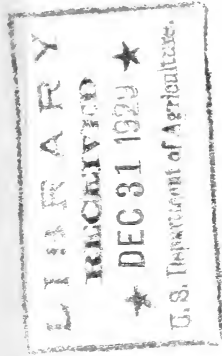 LIBRARY
RECEIVED
★ DEC 31 1929 ★
U. S. Department of Agriculture.